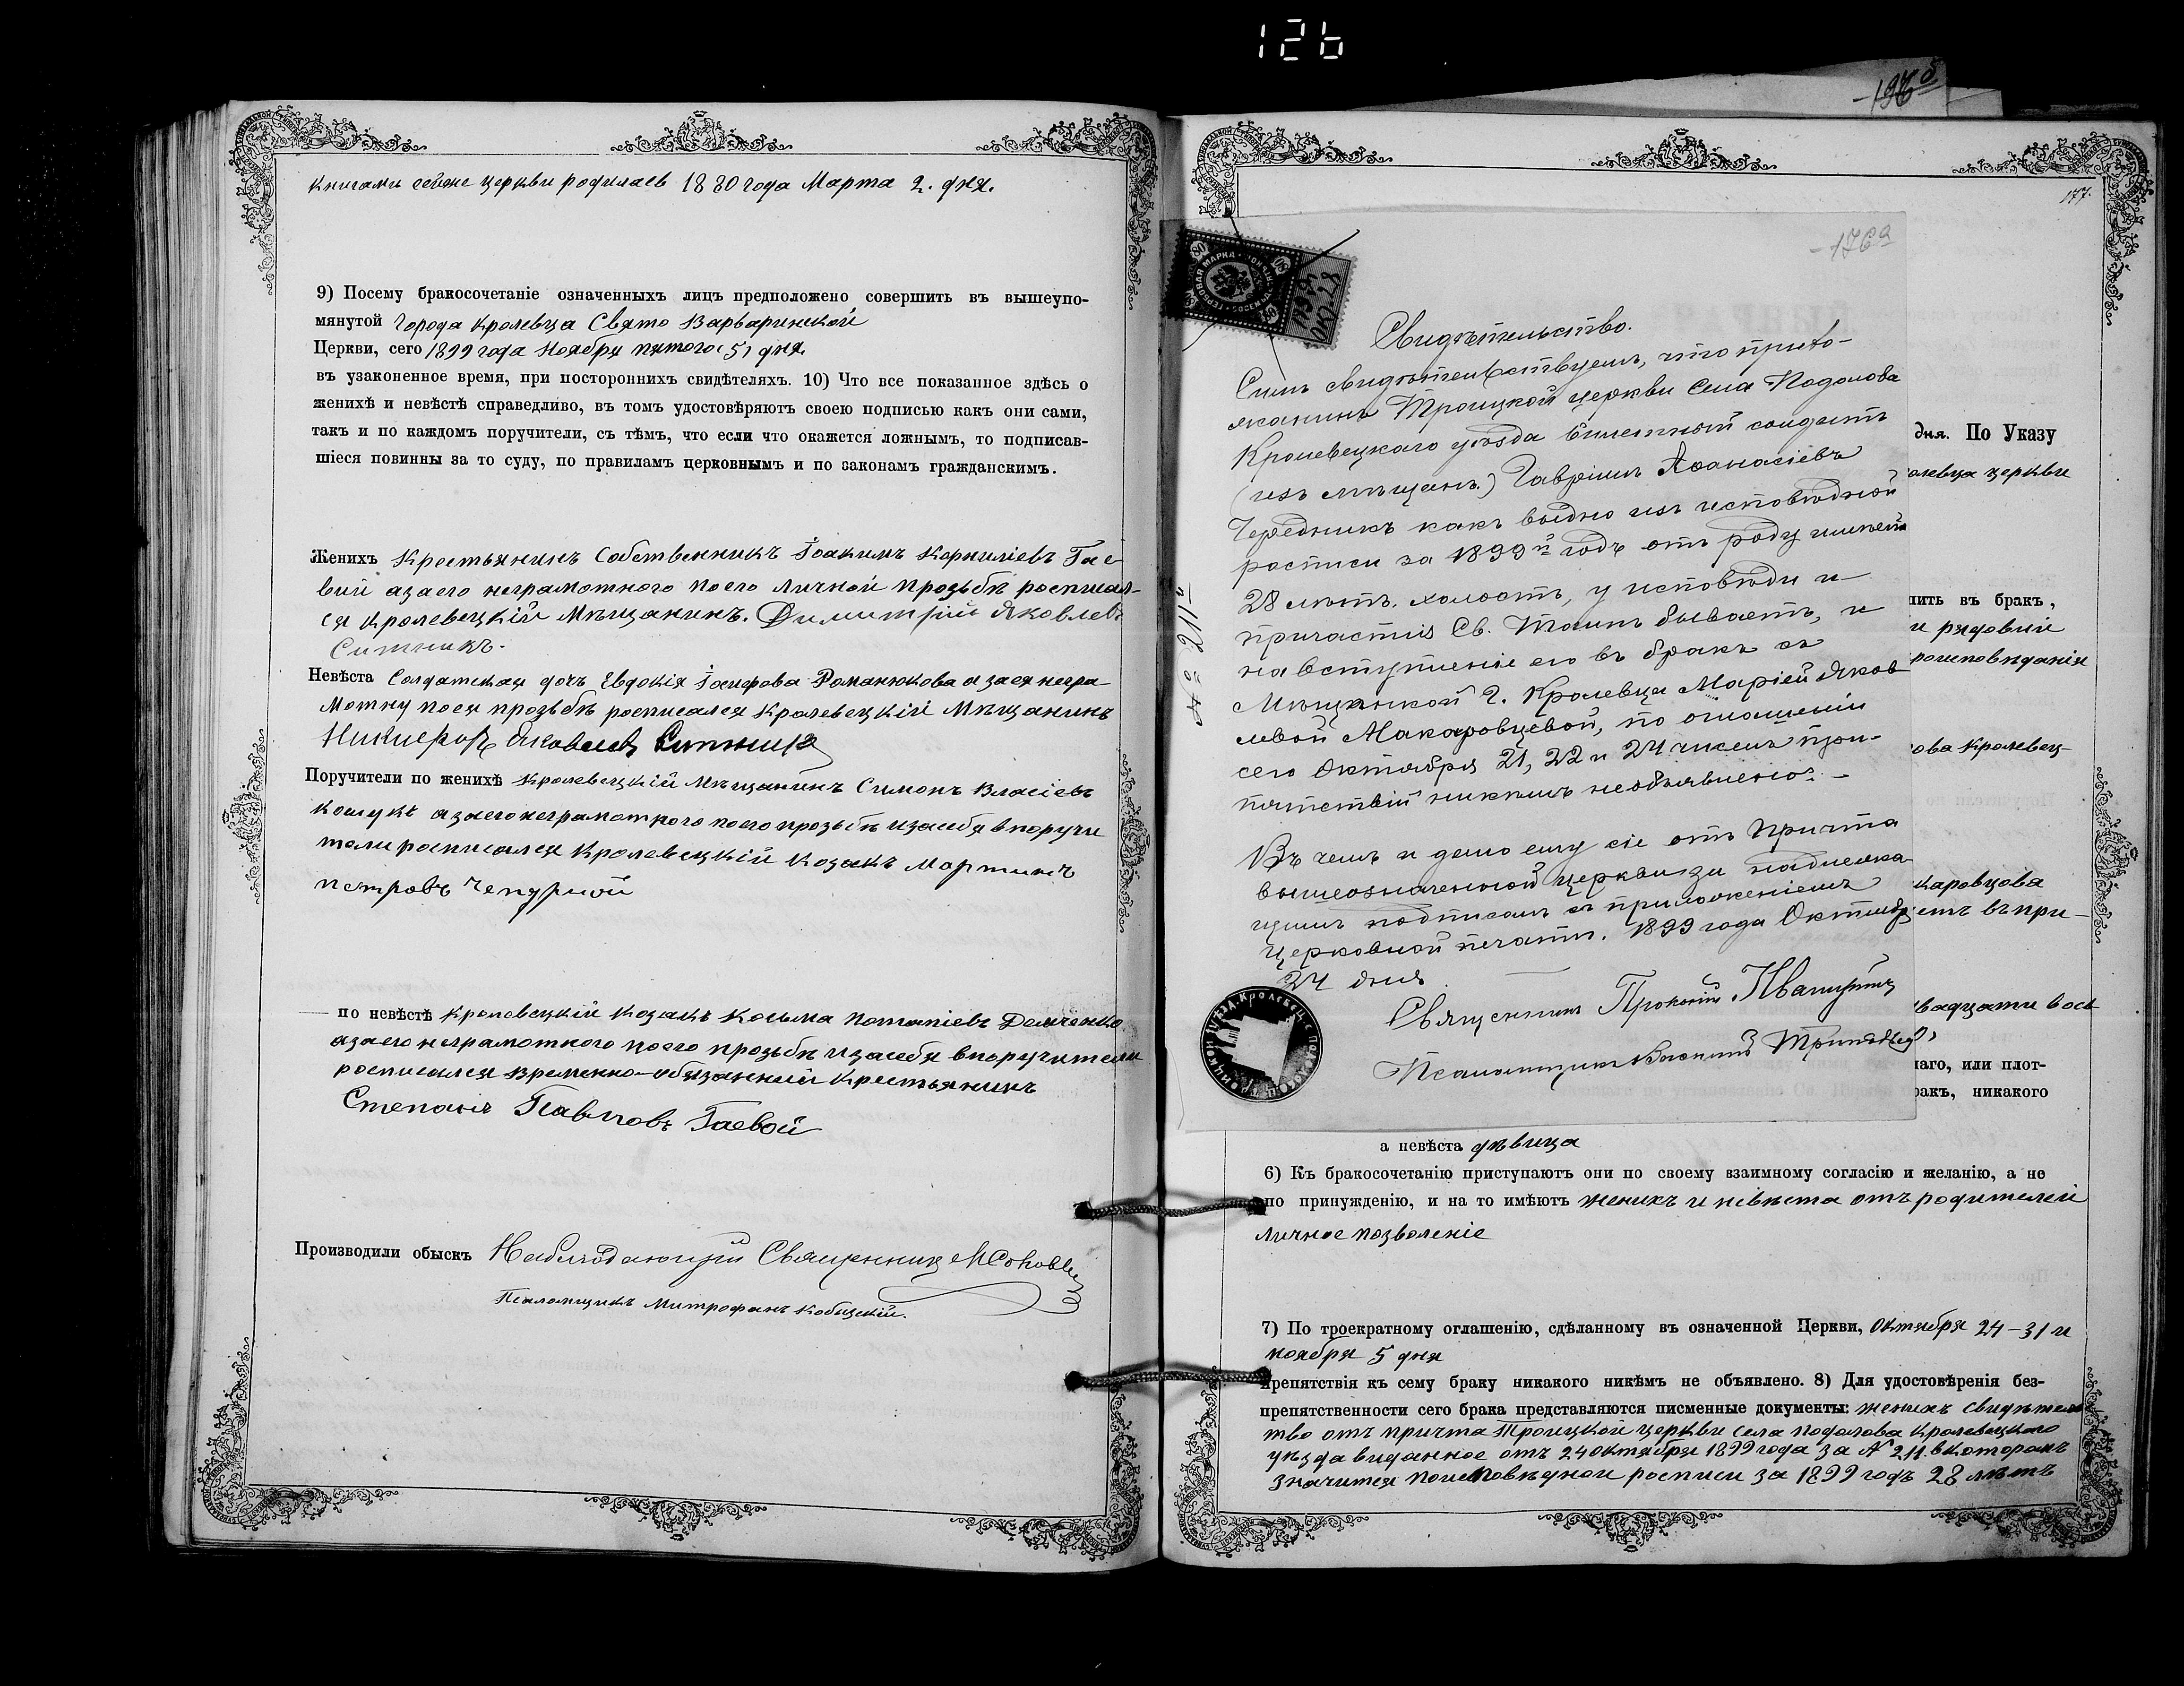 126
книгамъ сейже церкви родилась 1880 года Марта 2. дня.
9) Посему бракосочетаніе означенныхъ лицъ предположено совершить въ вышеупо-
мянутой Города Кролевца Свято Варваринской
Церкви, сего 1899 года Ноября пятого (5) дня.
въ узаконенное время, при постороннихъ свидѣтеляхъ. 10) Что все показанное здѣсь о
женихѣ и невѣстѣ справедливо, въ томъ удостовѣряютъ своею подписью какъ они сами,
такъ и по каждомъ поручители, съ тѣмъ, что если что окажется ложнымъ, то подписав-
шіеся повинны за то суду, по правиламъ церковнымъ и по законамъ гражданскимъ.
Женихъ Крестьянинъ Собственникъ Іоакимъ Корниліевъ Гае-
вий азаего неграмотного поего личной прозьбѣ росписал-
ся кролевецкій Мѣщанинъ. Димитрій Яковлевъ
Ситникъ.
Невѣста Солдатская дочь Евдокія Іосифова Романюкова а заея негра-
мотну поея прозьбѣ росписался Кролевецкій Мѣщанинъ
Никифоръ Яковлевъ Ситникъ
Поручители по женихѣ Кролевецкій Мѣщанинъ Симонъ Власіевъ
азаего неграмотного поего прозьбѣ изасебя впоручи
тели росписался Кролевецкій Козакъ Мартинъ
петровъ Чепурной
по невѣстѣ Кролевецкій Козакъ Косьма Потапіевъ Демченко
азаего неграмотного поего прозьбѣ изасебя впоручители
росписался временно-обязанній Крестьянинъ
Степанъ Павловъ Гаевой
Производили обыскъ Наблюдающій Священникъ
Псаломщикъ Митрофанъ Кобыцкій.
177.
-176а
Свидѣтельство.
Симъ свидѣтельствуемъ, что прихо-
жанинъ Троицкой церкви села Подолова
Кролевецкаго уѣзда билетный солдатъ
(изъ мѣщанъ.) Гавріилъ Аѳанасіевъ
Чередникъ какъ видно изъ исповѣдной
росписи за 1899й годъ отъ роду имѣетъ
28 лѣтъ. холостъ, у исповѣди и
причастія Св. Таинъ бываетъ, и
на вступленіе его въ бракъ съ
Мѣщанкой г. Кролевца Маріей Яков
левой Макаровцевой, по оглашеніи
сего Октября 21, 22 и 24 чиселъ преп-
пятствій никкимъ необъявлено. –
Въ чемъ и дано ему сіе отъ Причта
вышеозначенной церкви за надлежа
щимъ подписомъ съ приложеніемъ
церковной печати. 1899 года Октября
24 дня
Священникъ Прокопій
Псаломщикъ
дня. По Указу
олевца церкви
пить въ бракъ,
и рядовій
роисповѣданія
ова Кролевец-
каровцова
етъ въ при-
вадцати вось
наго, или плот-
ракъ, никакого
а невѣста дѣвица
6) Къ бракосочетанію приступаютъ они по своему взаимному согласію и желанію, а не
по принужденію, и на то имѣютъ женихъ и невѣста отъ родителей
личное позволеніе
7) По троекратному оглашенію, сдѣланному въ означенной Церкви, Октября 24-31 и
ноября 5 дня
препятствія къ сему браку никакого никѣмъ не объявлено. 8) Для удостовѣренія без-
препятственности сего брака представляются писменные документы: женихъ свидѣтель
тво отъ причта Троицкой церкви села подолова Кролевецкого
уѣзда виданное отъ 24 октября 1899 года за № 211. вкоторомъ
значится поисповѣдной росписи за 1899 годъ 28 лѣтъ